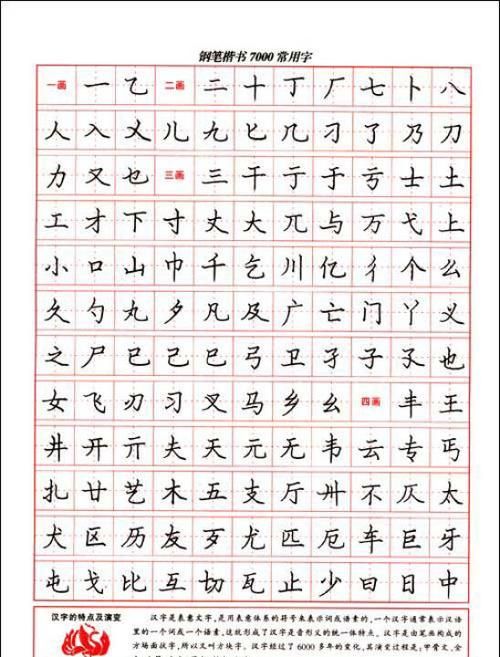 钢笔楷书7000常用字
一画 一 乙 二画 二 十 丁 厂 七 卜 八
人 入 乂 儿 九 匕 几 刁 了 乃 刀
力 又 也 三画 三 干 亍 于 亏 士 土
工 才 下 寸 丈 大 兀 与 万 弋 上
小 口 山 巾 千 乞 川 亿 彳 个 么
久 勺 丸 夕 凡 及 广 亡 门 丫 义
之 尸 已 己 巳 弓 卫 孑 子 孓 也
女 飞 刃 习 叉 马 乡 幺 四画 丰 王
井 开 亓 夫 天 元 无 韦 云 专 丐
扎 廿 艺 木 五 支 厅 卅 不 仄 太
犬 区 历 友 歹 尤 匹 厄 车 巨 牙
屯 戈 比 互 切 瓦 止 少 曰 日 中
汉字的特点及演变
汉字是表意文字,是用表意体系的符号来表示词或语素的,一个汉字通常表示汉语
里的一个词或一个语素,这就形成了汉字是音形义的统一体特点。汉字是由笔画构成的
方块面状字,所以又叫方块字。汉字经过了6000多年的变化,其演变过程是:甲骨文、金